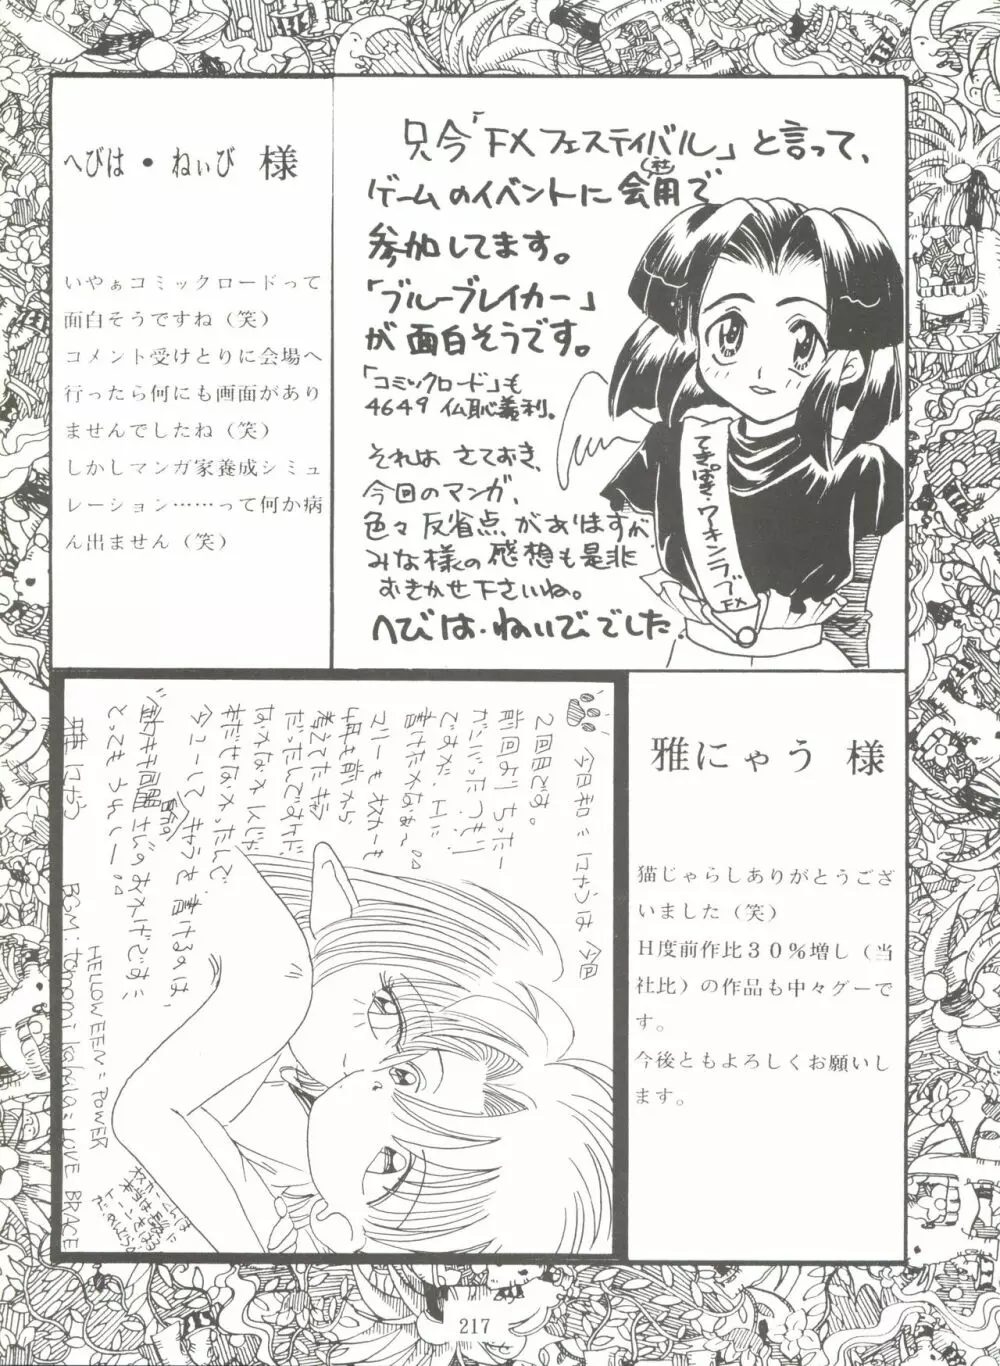 へびは・ねぃび 様
いやぁコミックロードって
面白そうですね（笑）
コメント受けとりに会場へ
行ったら何にも画面があり
ませんでしたね（笑）
しかしマンガ家養成シミュ
レーション……って何か病
ん出ません（笑）
只今「FXフェスティバル」と言って、
ゲームのイベントに会用で
（社）
参加してます。
「ブルーブレイカー」
が面白そうです。
「コミックロード」も
4649仏恥義利。
それはさておき、
今回のマンガ、
色々反省点がありますが
みな様の感想も是非
おきかせ下さいね。
へびは・ねぃびでした
てきぱき・ワーキンラブ
FX
雅にゃう 様
猫じゃらしありがとうござ
いました（笑）
H度前作比30％増し（当
社比）の作品も中々グーで
す。
今後ともよろしくお願いし
ます。
今日和ニにゃうは今回
2回目です。
前回よりちったー
だいぶったつもり
ですが、Hに
書けたかなぁ〜
考えてたキャラ
だったんですけど
とってもうれしー
雅にゃう
BGM:tomomi kahala:LOVE BRACE
HELLOWEEN:POWER
217